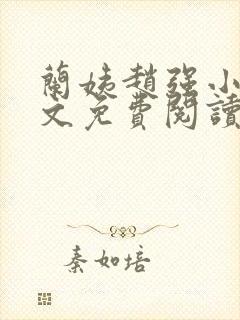 蘭姨趙強小
文免費閱讀
秦如培